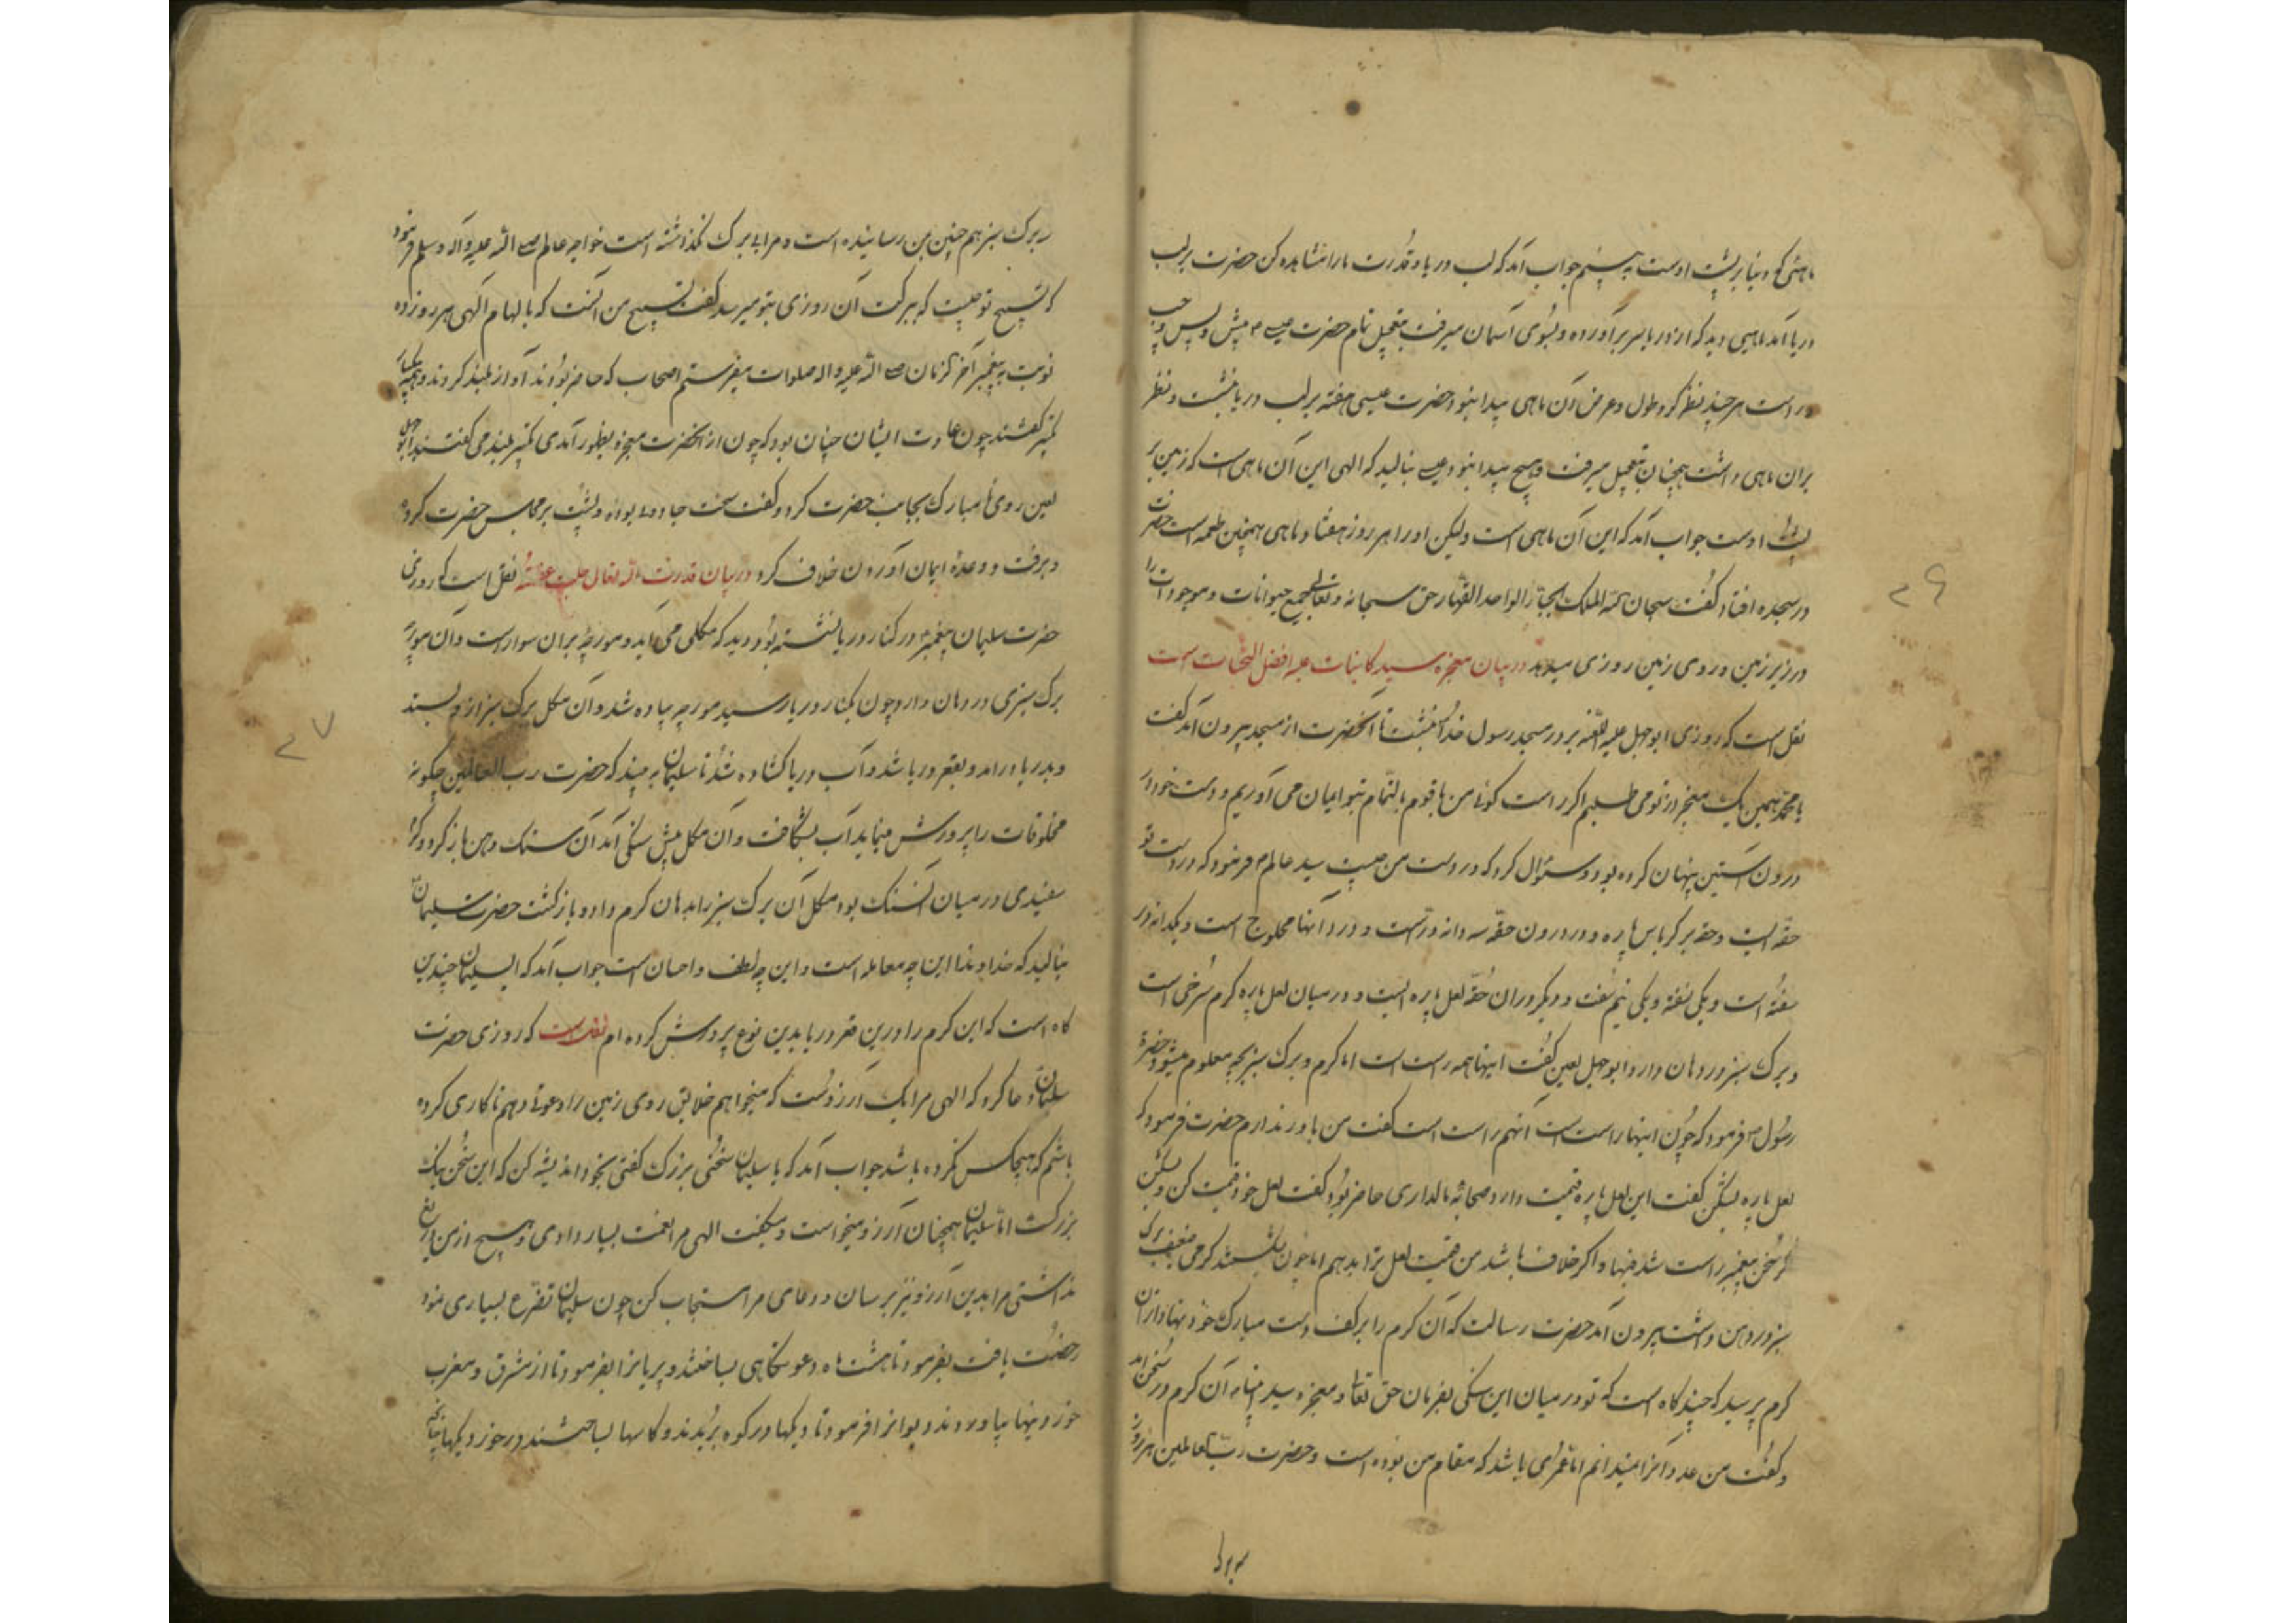 ماهئی که دنیا بر پشت اوست به بینم جواب آمد که لب دریا و قدرت ما را مشاهده کن حضرت بر لب
دریا آمد ماهیی دید که از دریا سر برآورده و بسوی آسمان میرفت بتعجیل تمام حضرت عیسی ۴ پیش و پس و چپ
و راست هر چند نظر کرد طول و عرض آن ماهی پیدا نبود حضرت عیسی هفته بر لب دریا نشست و نظر
بران ماهی داشت همچنان بتعجیل میرفت و هیچ پیدا نبود عیسی بنالید که الهی این آن ماهی است که زمین بر
پشت اوست جواب آمد که این آن ماهی است ولیکن او را هر روز هفتاد ماهی همچنین طعمه است حضرت
در سجده افتاد و گفت سبحان الله الملک الجبار الواحد القهار حق سبحانه و تعالی جمیع حیوانات و موجودات را
در زیر زمین و روی زمین روزی میدهد در بیان معجزه سید کاینات علیه افضل التحیات است
نقل است که روزی ابوجهل علیه اللعنه بر در مسجد رسول خدا نشست تا آنحضرت از مسجد بیرون آمد گفت
یا محمد همین یک معجز از تو می طلبم اگر راست گوئی من با قوم بالتمام بتو ایمان می آوریم و دست خود در
درون آستین پنهان کرده بود و سئوال کرد که در دست من چیست سید عالم ۴ فرمود که در دست تو
حقه ایست و حقه بر کرباس پاره و در درون حقه سه دانه درست و در آنها محلوج است و یکدانه در
سفته است و یکی نسفته و یکی نیم سفت و دیگر در آن حقه لعل پاره ایست و در میان لعل پاره کرم سرخی است
و برگ سبز در دهان دارد ابوجهل لعین گفت اینها همه راست است اما کرم و برگ سبز بچه معلوم میشود حضرة
رسول ۴ فرمود که چون اینها راست است آنهم راست است گفت من باور ندارم حضرت فرمود که
لعل پاره بشکن گفت این لعل پاره قیمت دارد صحابئه مالداری حاضر بود گفت لعل خود قیمت کن و بشکن
گر سخن پیغمبر راست شد فبها و اگر خلاف باشد من قیمت لعل ترا بدهم اما چون بشکستند کرمی ضعیف برگ
سبز در دهن داشت بیرون آمد حضرت رسالت که آن کرم را بر کف دست مبارک خود نهاد و از آن
کرم پرسید که چند گاه است که تو در میان این سنگی بفرمان حق تعالی و معجزه سید انبیا آن کرم در سخن آمد
و گفت من عدد آنرا نمیدانم اما عمری باشد که مقام من بوده است و حضرت رب العالمین هر روز
۲۶
ر برگ سبز همچنین بمن رسانیده است و مرا بی برگ نگذاشته است خواجه عالم صلی الله علیه و آله وسلم فرمود
که تسبیح تو چیست که ببرکت آن روزی بتو میرسد گفت تسبیح من آنست که بالهام الهی هر روز ده
نوبت به پیغمبر آخر الزمان صلی الله علیه و اله صلوات میفرستم اصحاب که حاضر بودند آواز بلند کردند و همه یکبار
تکبیر گفتند چون عادت ایشان چنان بود که چون از آنحضرت معجزه بظهور آمدی تکبیر بلند می گفتند ابوجهل
لعین روی نامبارک بجانب حضرت کرد و گفت سخت جادو بوده و پشت بر مجلس حضرت کرد
و برفت و وعدۀ ایمان آوردن خلاف کرد در بیان قدرت الله تعالی جلت عظمته نقل است که روزی
حضرت سلیمان پیغمبر ۴ در کنار دریا نشسته بود دید که مکلی می آید و مورچه بران سوار است و آن مورچه
برگ سبزی در دهان دارد چون بکنار دریا رسید مورچه پیاده شد و آن مکل برگ سبز ازو بستد
و بدریا درامد و بقعر دریا شد و آب دریا گشاده شد تا سلیمان به بیند که حضرت رب العالمین چگونه
مخلوقات را پرورش مینماید آب بشکافت و آن مکل پیش سنگی آمد آن سنگ دهن باز کرد و کرم
سفیدی در میان آن سنگ بود مکل آن برگ سبز را بدهان کرم داد و بازگشت حضرت سلیمان
بنالید که خداوندا این چه معامله است و این چه لطف و احسان است جواب آمد که ای سلیمان چندین
گاه است که این کرم را درین قعر دریا بدین نوع پرورش کرده ام نقلست که روزی حضرت
سلیمان دعا کرد که الهی مرا یک آرزوست که میخواهم خلایق روی زمین را دعوتی دهم تا کاری کرده
باشم که هیچکس نکرده باشد جواب آمد که یا سلیمان سخنی بزرگ گفتی بخود اندیشه کن که این سخن نیک
بزرگست اما سلیمان همچنان آرزو میخواست و میگفت الهی مرا نعمت بسیار دادی و هیچ از من دریغ
نداشتی مرا بدین آرزو نیز برسان و دعای مرا مستجاب کن چون سلیمان تضرع بسیاری نمود
رخصت یافت بفرمود تا هشت ماه دعوتگاهی بساختند و پریانرا بفرمود تا از مشرق و مغرب
خوردنیها بیاوردند و دیوانرا فرمود تا دیکها در کوه بریدند و کاسها بساختند در خور دیکها چنانچه
۲۷